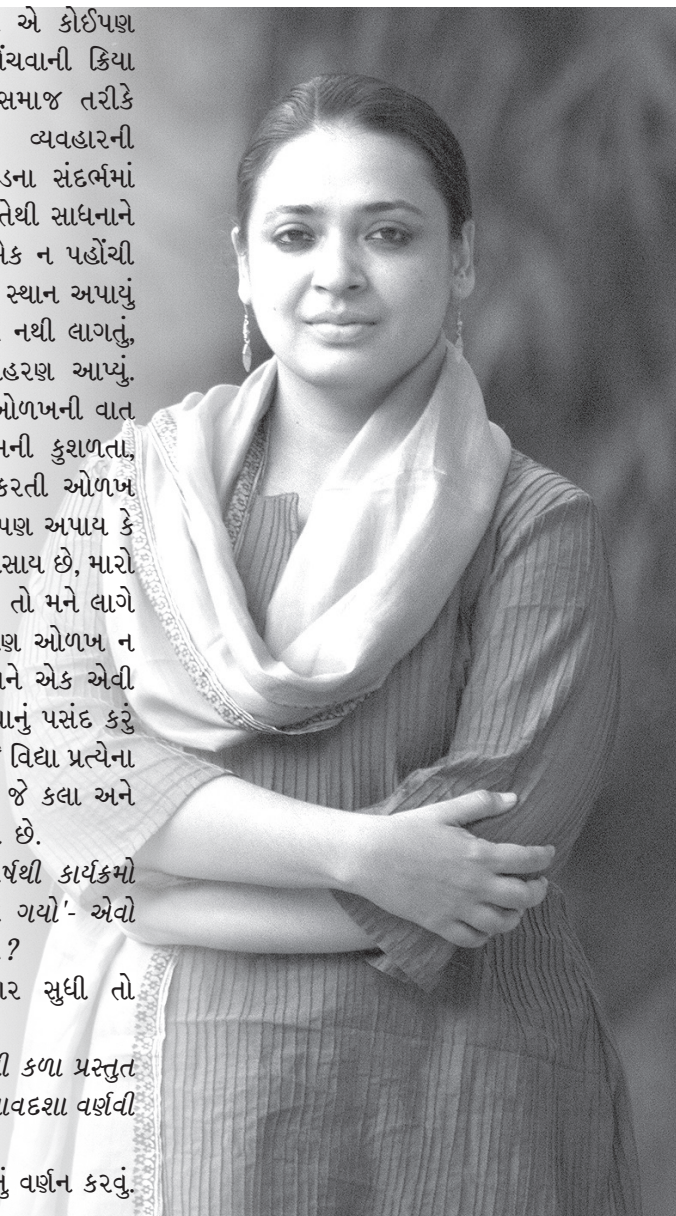 એ કોઈપણ
ક્રિયા
સમાજ તરીકે
વ્યવહારની
સંદર્ભમાં
તેથી સાધનાને
ન પહોંચી
સ્થાન અપાયું
નથી લાગતું,
આપ્યું.
ઓળખની વાત
કુશળતા,
કરતી ઓળખ
પણ અપાય કે
છે, મારો
તો મને લાગે
ઓળખ ન
એક એવી
પસંદ કરું
વિદ્યા પ્રત્યેના
જે કલા અને
છે.
કાર્યક્રમો
ગયો'- એવો
?
સુધી તો
કળા પ્રસ્તુત
વર્ણવી
વર્ણન કરવું.